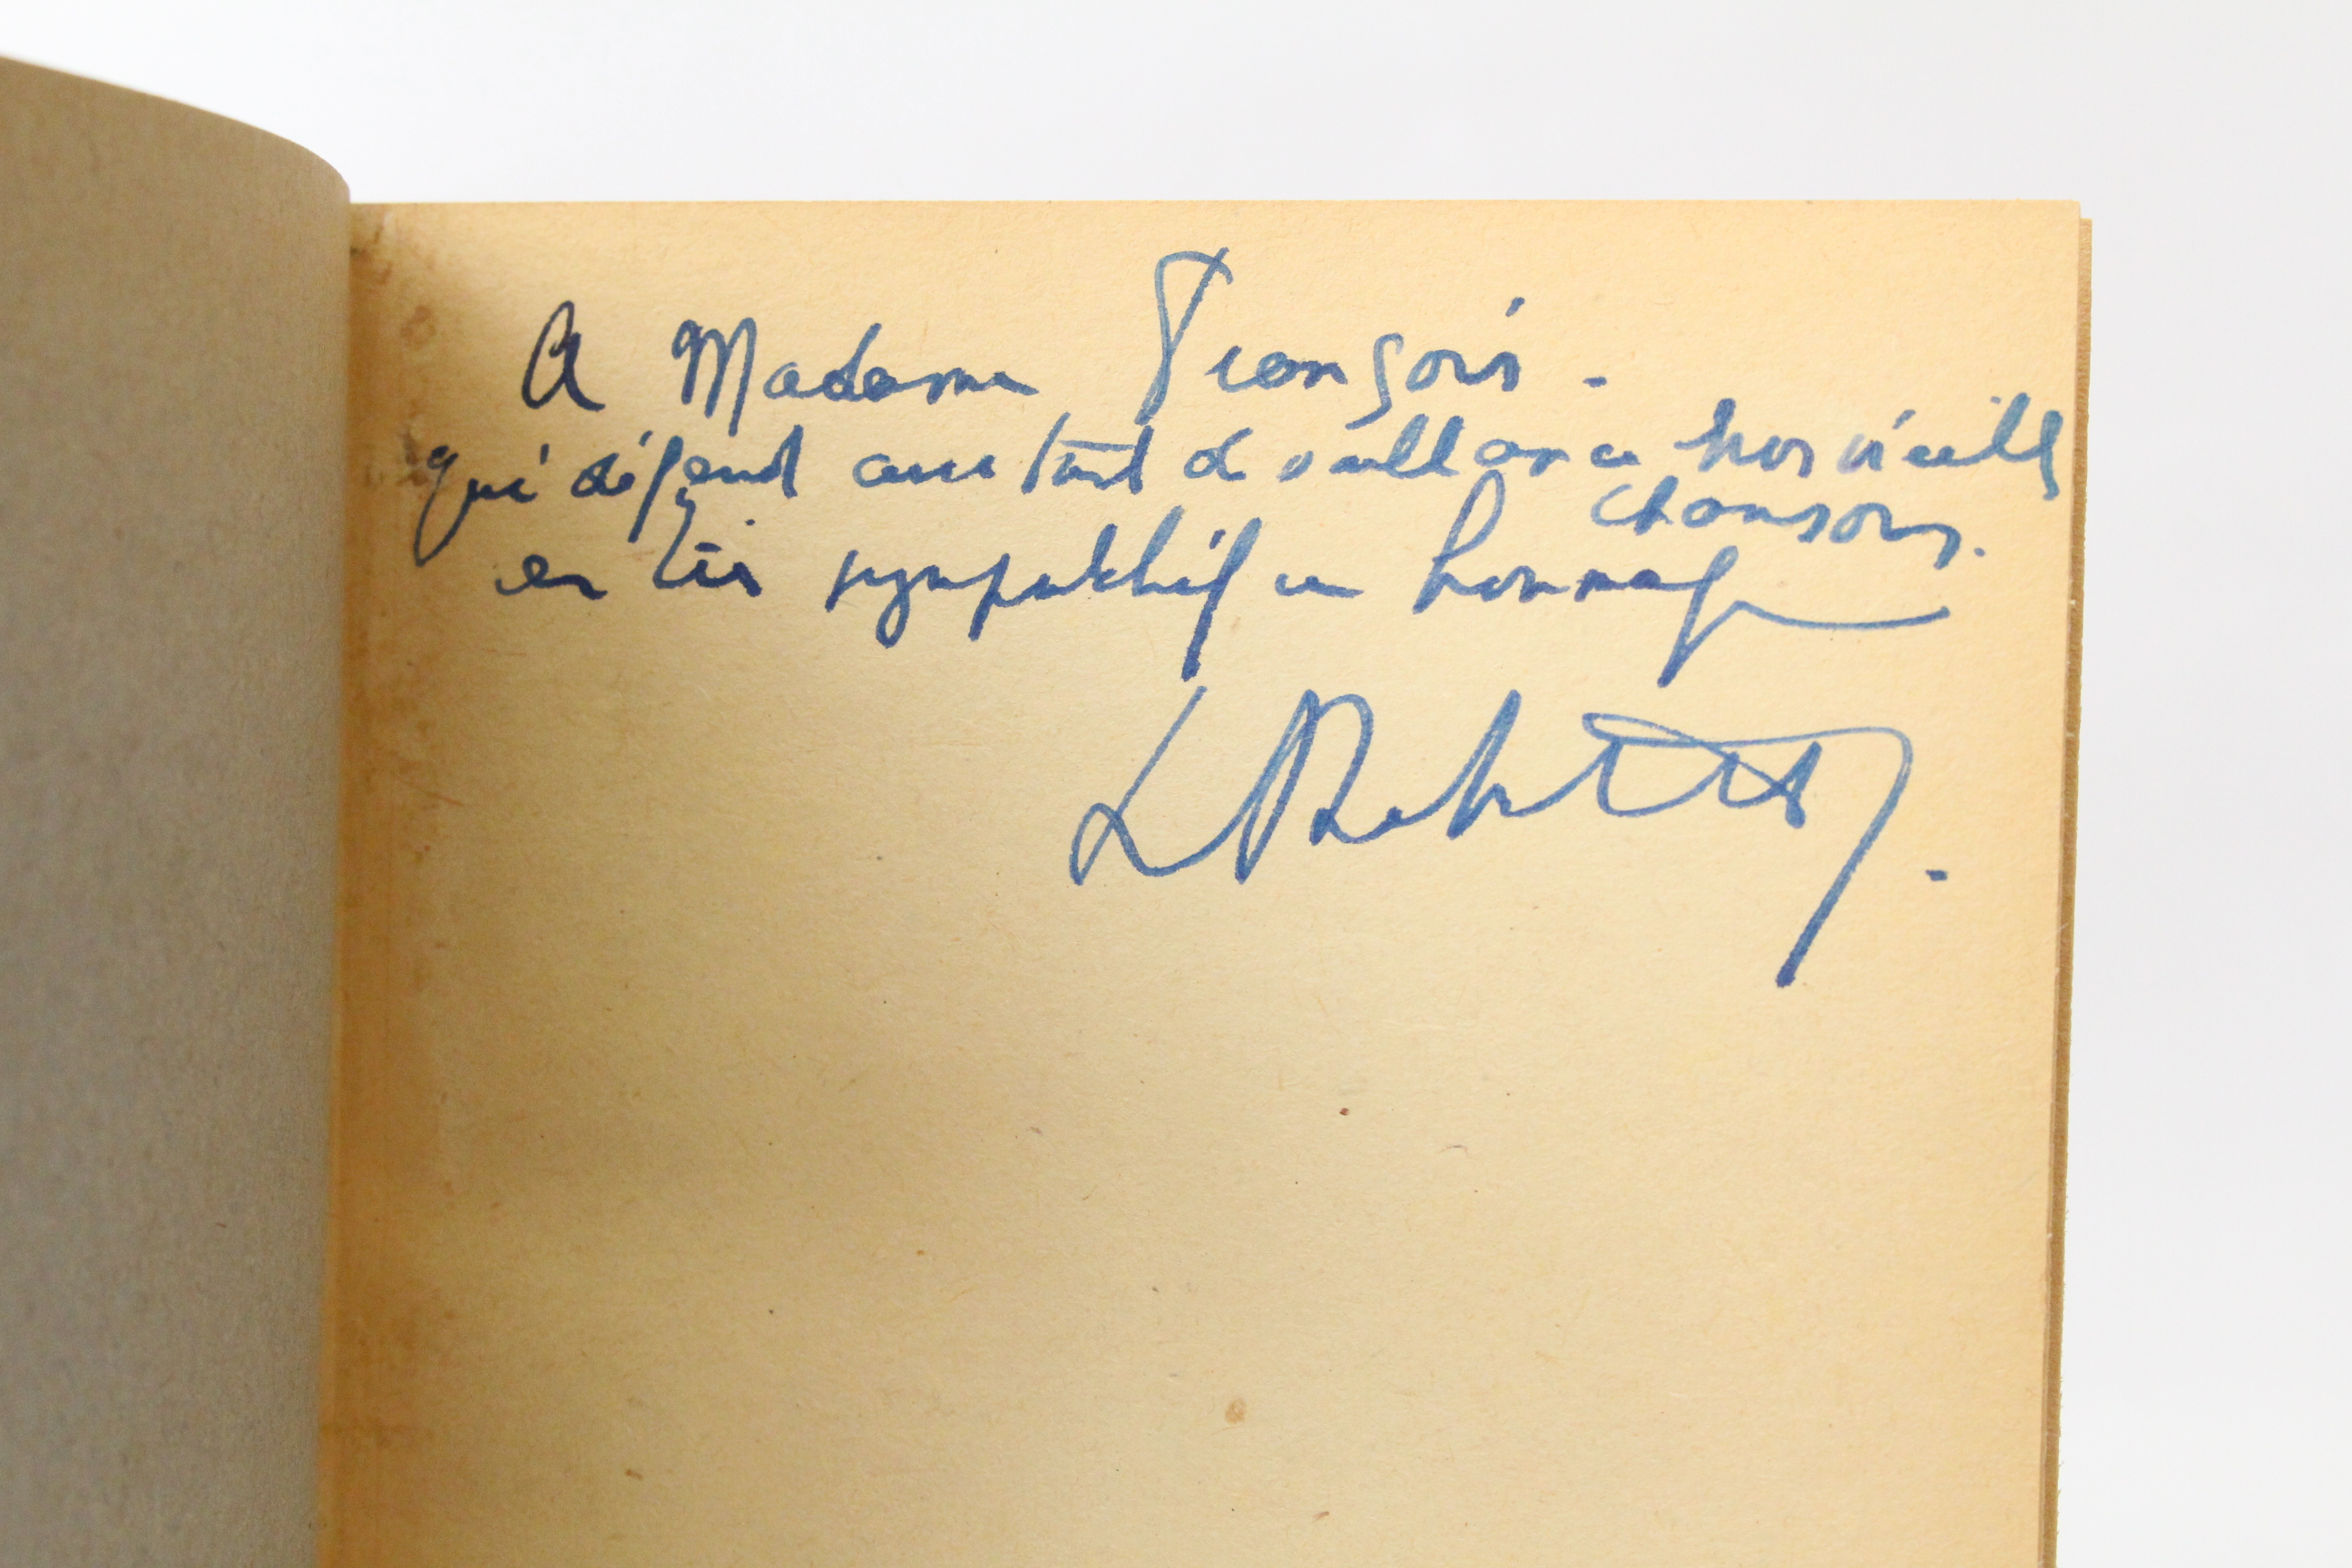 A Madame François.
qui défend avec tant de vaillance nos vieilles
chansons.
en très sympathique hommage